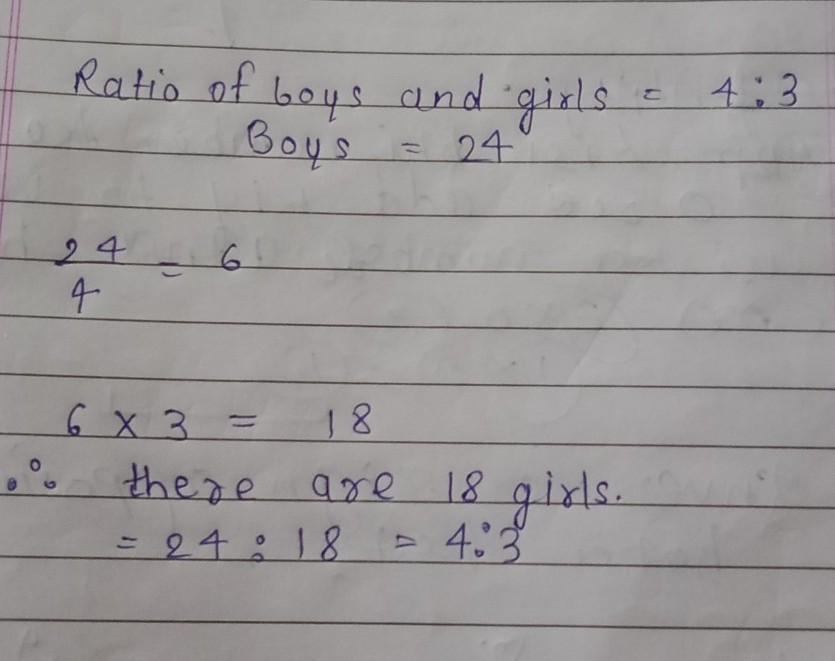 Ratio of boys and girls = 4:3
Boys = 24
24/4 = 6
6 × 3 = 18
∴ there are 18 girls.
= 24 : 18 = 4:3